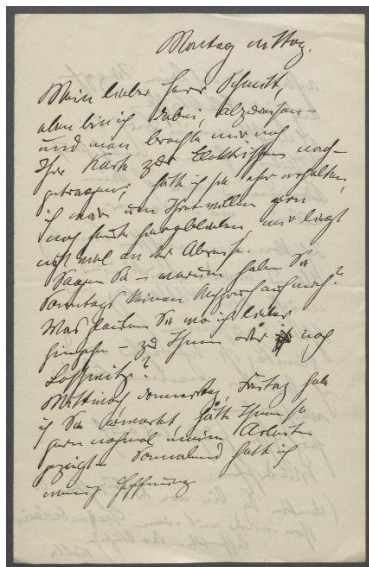 Montag Mittag.
Mein lieber Herr Schmitt,
eben bin ich dabei, abzureisen –
und man brachte mir noch
Ihre Karte zur Elektrischen nach-
getragen; hätte ich sie eher erhalten,
ich wäre um Ihretwillen gern
noch heute hiergeblieben, mir liegt
nicht viel an der Abreise.
Sagen Sie – warum haben Sie
Sonntags keinen Anspruch auf mich?
Was glauben Sie wo ich lieber
hingehe – zu Ihnen oder noch
Loschwitz?
Mittwoch Donnerstag, Freitag habe
ich Sie erwartet, hätte Ihnen so
gern nochmal meine Arbeiten
gezeigt – Sonnabend hatte ich
wenig Hoffnung